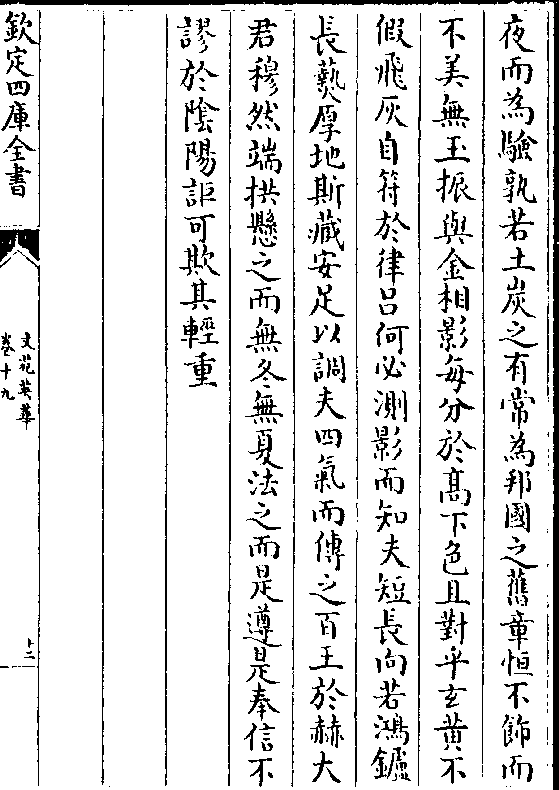 夜而為驗孰若土炭之有常為邦國之舊章恒不飾而
不美無玉振與金相影每分於髙下色且對乎玄黄不
假飛灰自符於律吕何必測影而知夫短長向若鴻鑪
長爇厚地斯藏安足以調夫四氣而傳之百王於赫大
君穆然端拱懸之而無冬無夏法之而是遵是奉信不
謬於陰陽詎可欺其輕重
欽定四庫全書
文苑英華
卷十九
十二